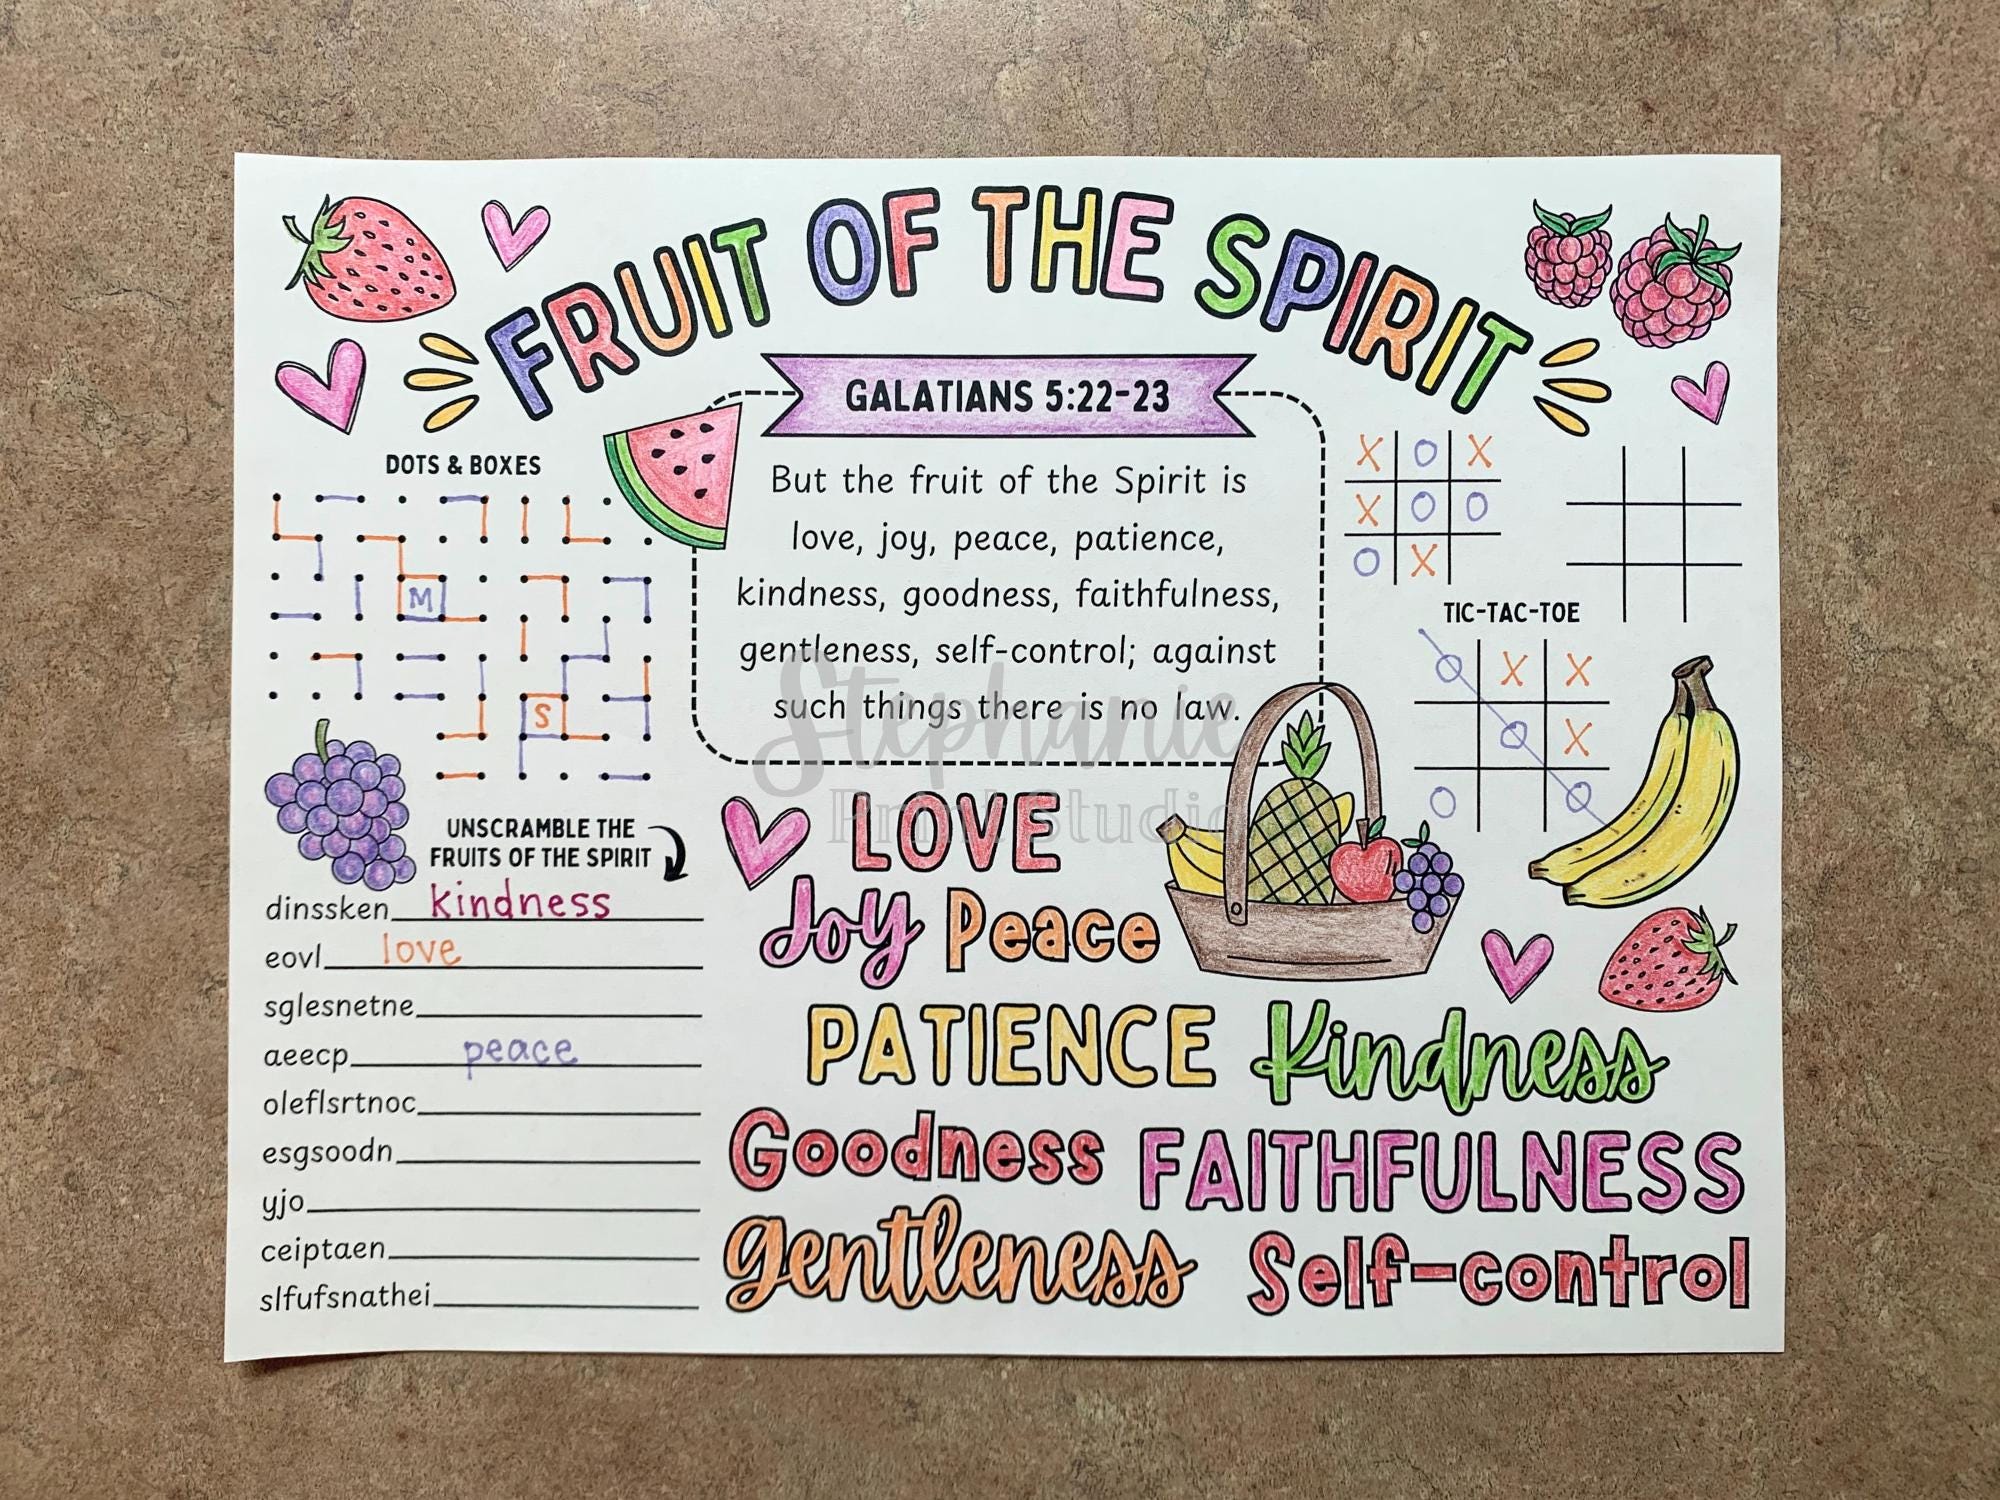 FRUIT OF THE SPIRIT
GALATIANS 5:22-23
But the fruit of the Spirit is
love, joy, peace, patience,
kindness, goodness, faithfulness,
gentleness, self-control; against
such things there is no law.
DOTS & BOXES
M
S
X O X
X O O
O X
TIC-TAC-TOE
O X X
O X
O O
UNSCRAMBLE THE
FRUITS OF THE SPIRIT
dinssken kindness
eovl love
sglesnetne
aeecp peace
oleflsrtnoc
esgsoodn
yjo
ceiptaen
slfufsnathei
LOVE
Joy Peace
PATIENCE Kindness
Goodness FAITHFULNESS
gentleness Self-control
Stephanie
Print Studio